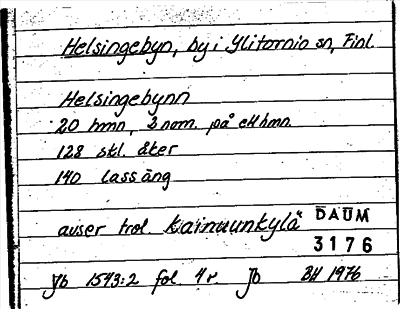 Helsingebyn, by i Ylitornio sn, Finl.
Helsingebynn
20 hmn, 3 nom. på ett hmn.
128 skl. åker
140 lass äng
avser trol Kainuunkylä
DAUM
3176
Jb 1543:2 fol. 4 r. Jb BH 1976